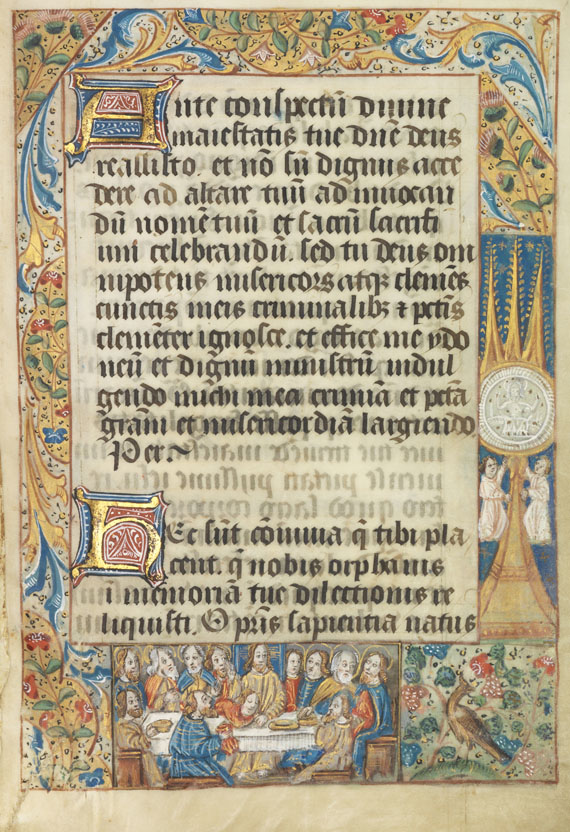 Ante conspectū diuine
maiestatis tue dn̄e deus
reus assisto. et nō sū dignus acce
dere ad altare tuū ad inuocan
dū nomē tuū et sacrū sacrifi
tiū celebrandū. sed tu deus om
nipotens misericors atqꝫ clemēs
cunctis meis criminalibꝫ ⁊ pctīs
clemēter ignosce. et effice me ydo
neū et dignū ministrū indul
gendo michi mea crimīa et pctā
gratiā et misericordiā largiendo
Per
Hec sūt cōuiuia q̄ tibi pla
cent. q̄ nobis orphanis
in memoriā tue dilectionis re
liquisti. O pr̄is sapientia natus